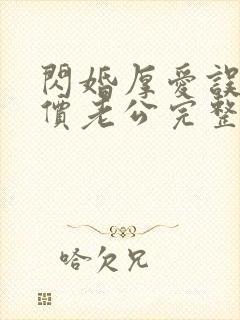 閃婚厚愛誤
價老公完整
哈欠兄